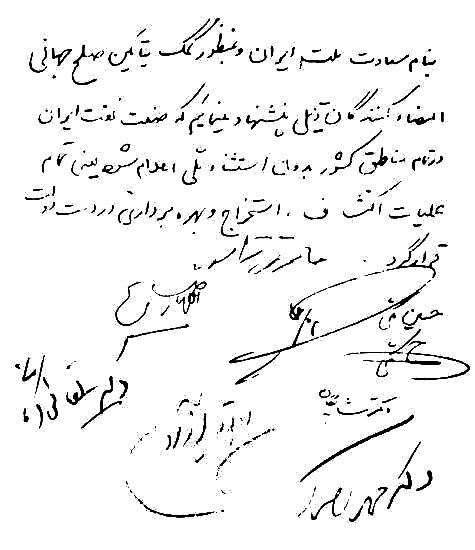 بنام سعادت ملت ایران و بمنظور کمک بتأمین صلح جهانی
امضاء کنندگان ذیل پیشنهاد مینمائیم که صنعت نفت ایران
در تمام مناطق کشور بدون استثناء ملی اعلام شود یعنی تمام
عملیات اکتشاف ، استخراج و بهره برداری در دست دولت
قرار گیرد .
حائری زاده
اللهیار صالح
حسین مکی
دکتر بقائی
دکتر شایگان
دکتر محمد مصدق